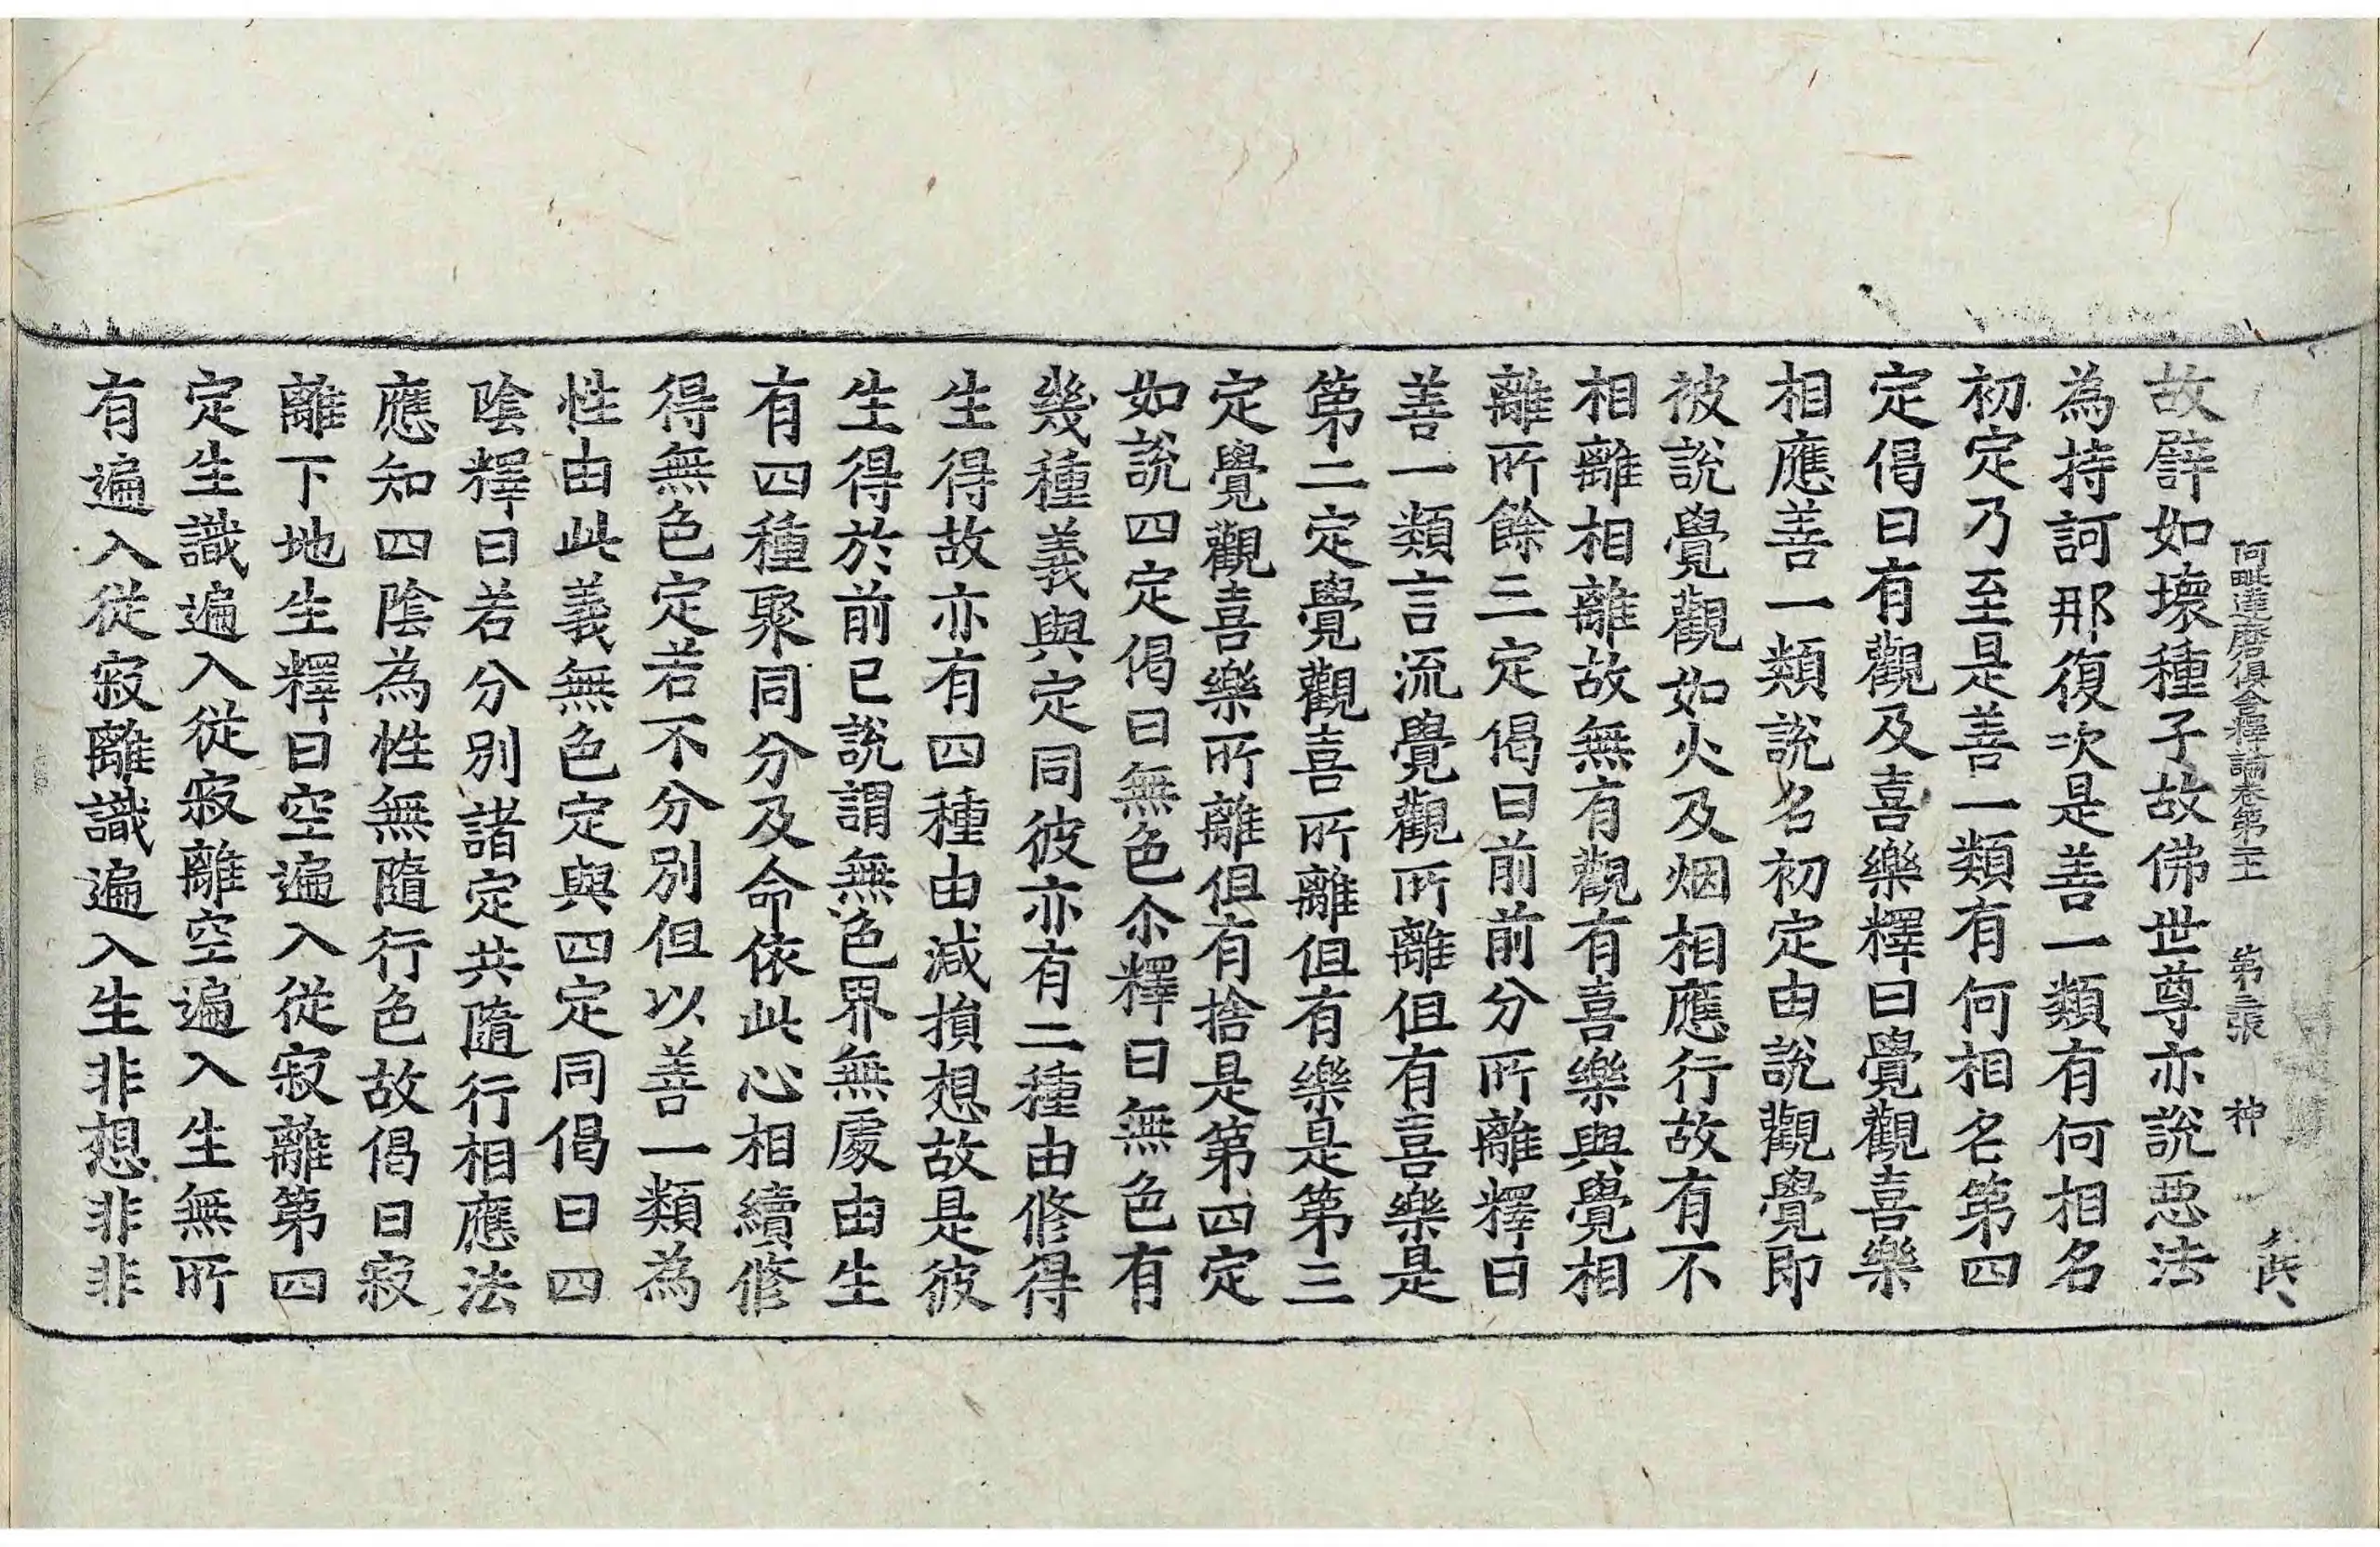 阿毗達磨俱舍釋論卷第二十一 第三張 神
故譬如壞種子故佛世尊亦說惡法
為持訶那復次是善一類有何相名
初定乃至是善一類有何相名第四
定偈曰有觀及喜樂釋曰覺觀喜樂
相應善一類說名初定由說觀覺即
彼說覺觀如火及烟相應行故有不
相離相離故無有觀有喜樂與覺相
離所餘三定偈曰前前分所離釋曰
善一類言流覺觀所離但有喜樂是
第二定覺觀喜所離但有樂是第三
定覺觀喜樂所離但有捨是第四定
如說四定偈曰無色尒釋曰無色有
幾種義與定同彼亦有二種由修得
生得故亦有四種由減損想故是彼
生得於前已說謂無色界無處由生
有四種聚同分及命依此心相續修
得無色定若不分別但以善一類為
性由此義無色定與四定同偈曰四
陰釋曰若分別諸定共隨行相應法
應知四陰為性無隨行色故偈曰寂
離下地生釋曰空遍入從寂離第四
定生識遍入從寂離空遍入生無所
有遍入從寂離識遍入生非想非非